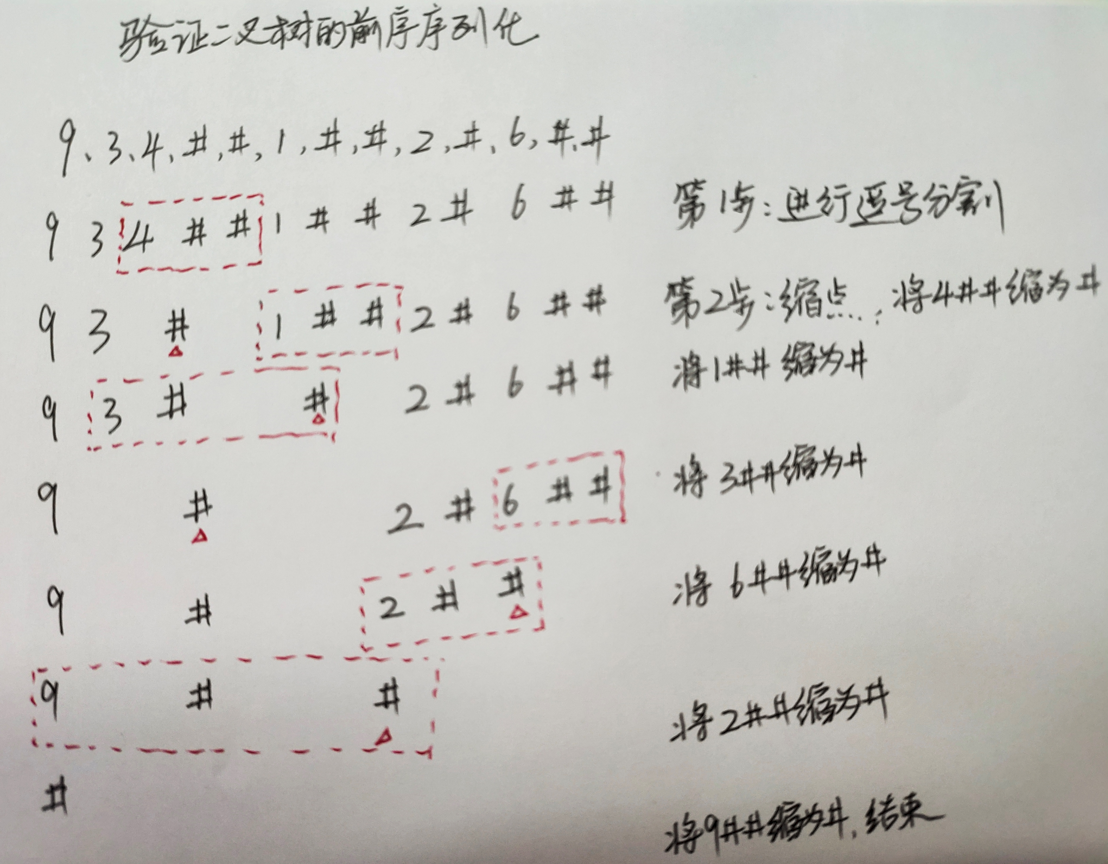 验证二叉树的前序序列化
9、3、4,#,#,1,#,#,2,#,6,#,#
9 3 4 # # 1 # # 2 # 6 # # 第1步:进行逗号分割
9 3 # 1 # # 2 # 6 # # 第2步:缩点..: 将4##缩为#
9 3 # # 2 # 6 # # 将1##缩为#
9 # 2 # 6 # # 将3##缩为#
9 # 2 # # 将6##缩为#
9 # # 将2##缩为#
# 将9##缩为#,结束